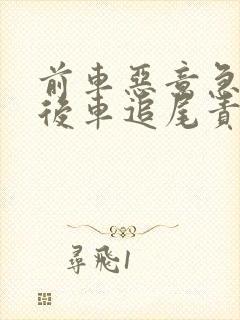 前車惡意急
後車追尾責
尋飛1